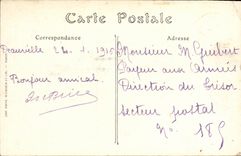 Carte Postale
Correspondance
Adresse
Deauville 24.1.1915
Monsieur M Guibert
Payeur aux Armées
Bonjour amical
Direction du Trésor
secteur postal
No.